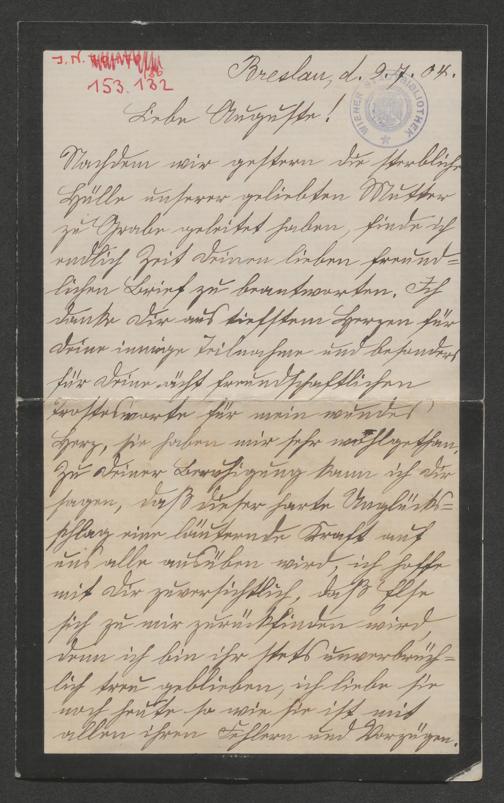 J. N.
153.132
WIENER BIBLIOTHEK
Breslau, d. 9.7.04.
Liebe Auguste!
Nachdem wir gestern die sterbliche
Hülle unserer geliebten Mutter
zu Grabe geleitet haben, finde ich
endlich Zeit Deinen lieben freund=
lichen Brief zu beantworten. Ich
danke Dir aus tiefstem Herzen für
Deine innige Teilnahme und besonders
für Deine ächt freundschaftlichen
Trostesworte für mein wundes
Herz, sie haben mir sehr wohlgethan.
Zu Deiner Beruhigung kann ich Dir
sagen, daß dieser harte Unglücks=
schlag eine läuternde Kraft auf
uns alle ausüben wird, ich hoffe
mit Dir zuversichtlich, daß Else
sich zu mir zurückfinden wird,
denn ich bin ihr stets unverbrüch=
lich treu geblieben, ich liebe sie
noch heute so wie sie ist mit
allen ihren Fehlern und Vorzügen.